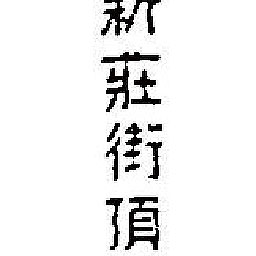 新莊街頂